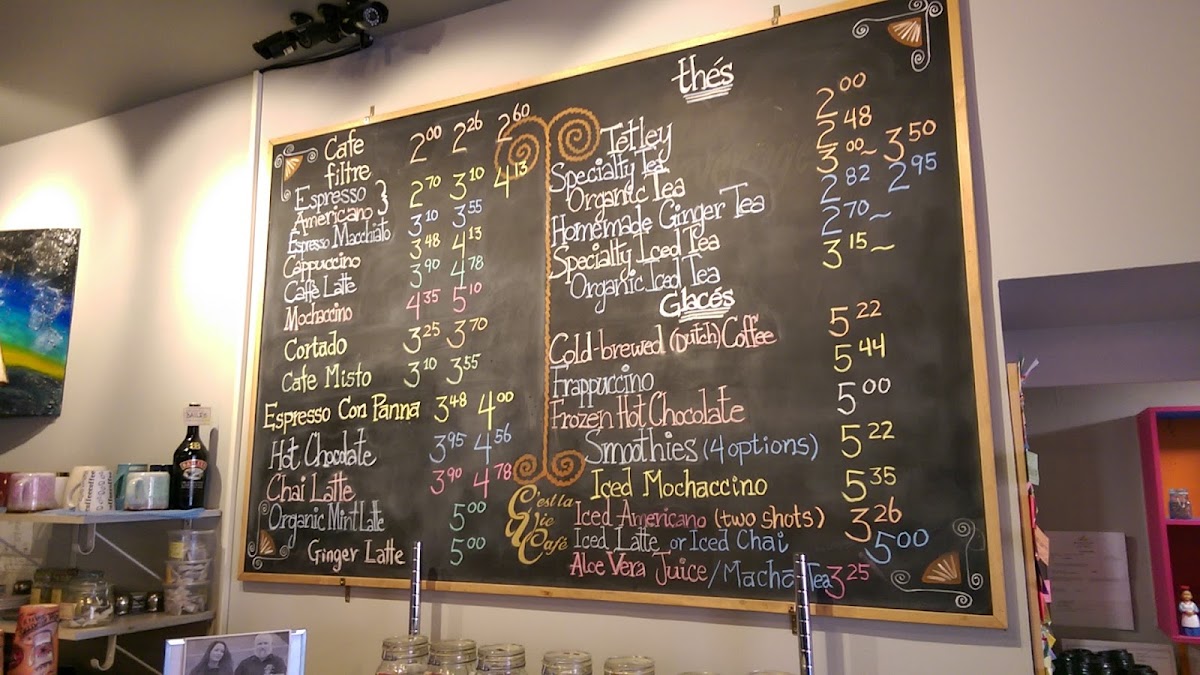 Cafe filtre 2.00 2.26 2.60
Espresso
Americano } 2.70 3.10 4.13
Espresso Macchiato 3.10 3.55
Cappuccino 3.48 4.13
Caffè Latte 3.90 4.78
Mochaccino 4.35 5.10
Cortado 3.25 3.70
Cafe Misto 3.10 3.55
Espresso Con Panna 3.48 4.00
Hot Chocolate 3.95 4.56
Chai Latte 3.90 4.78
Organic Mint Latte 5.00
Ginger Latte 5.00
C'est la
Vie
Café
thés
Tetley 2.00
Specialty Tea 2.48
Organic Tea 3.00~3.50
Homemade Ginger Tea 2.82 2.95
Specialty Iced Tea 2.70~
Organic Iced Tea 3.15~
Glacés
Cold-brewed (Dutch) Coffee 5.22
Frappuccino 5.44
Frozen Hot Chocolate 5.00
Smoothies (4 options) 5.22
Iced Mochaccino 5.35
Iced Americano (two shots) 3.26
Iced Latte or Iced Chai 5.00
Aloe Vera Juice/Macha Tea 3.25
BAILEYS